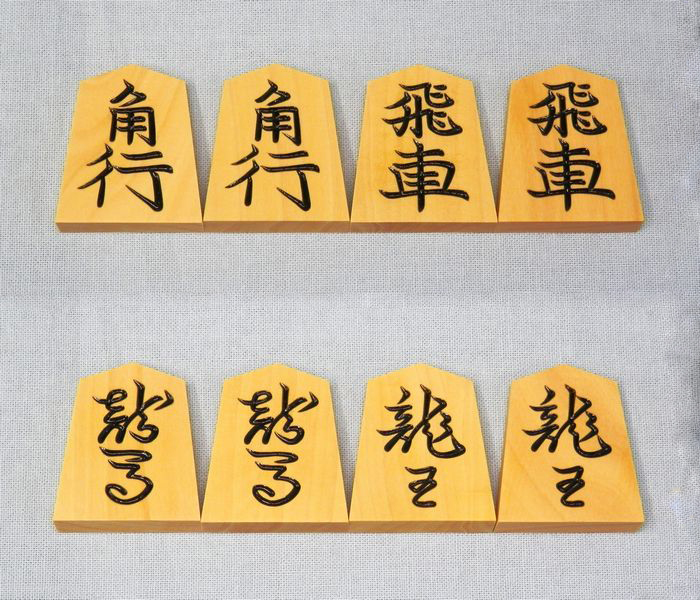 角行 角行 飛車 飛車
龍馬 龍馬 龍王 龍王